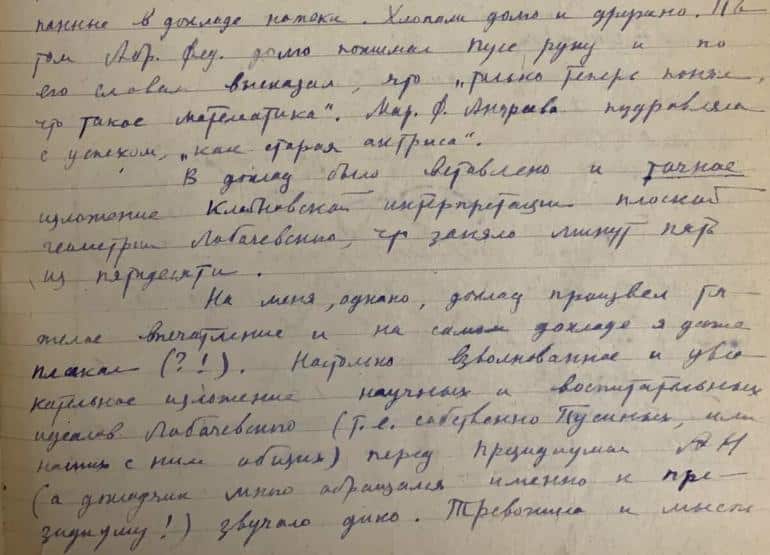 панные в докладе намеки. Хлопали долго и дружно. По-
том Абр. Фед. долго пожимал Пусе руку и по
его словам высказал, что „только теперь понял,
что такое математика“. Мар. Ф. Андреева поздравляла
с успехом, „как старая актриса“.
В доклад было вставлено и точное
изложение Клейновской интерпретации плоской
геометрии Лобачевского, что заняло минут пять
из пятидесяти.
На меня, однако, доклад произвел тя-
желое впечатление и на самом докладе я даже
плакал (?!). Настолько взволнованное и увле-
кательное изложение научных и воспитательных
идеалов Лобачевского (т.е. собственно Пусиных, или
наших с ним общих) перед Президиумом АН
(а докладчик много обращался именно к пре-
зидиуму!) звучало дико. Тревожила и мысль